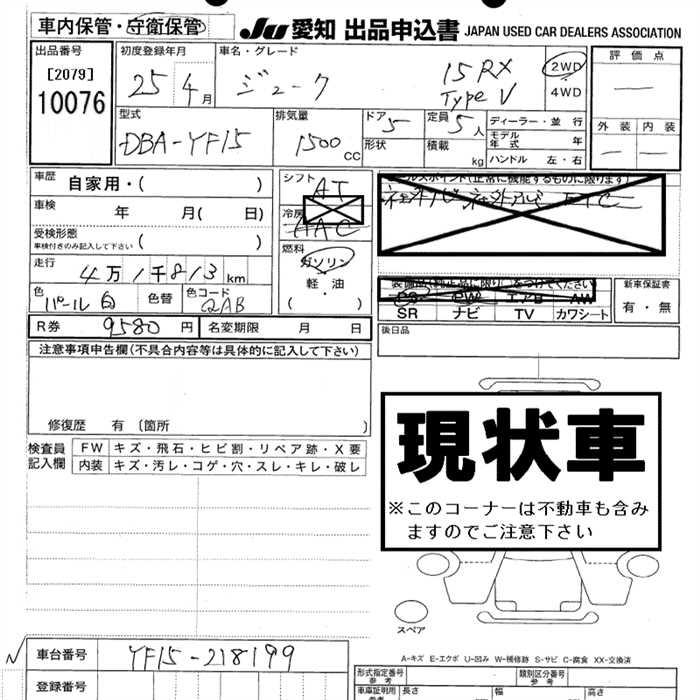 車内保管・守衛保管
JU 愛知 出品申込書 JAPAN USED CAR DEALERS ASSOCIATION
出品番号
[2079]
10076
初度登録年月
25 4月
車名・グレード
ジューク
15RX
Type V
2WD
4WD
評価点
―
外装 内装
― ―
型式
DBA-YF15
排気量
1500 CC
ドア 5
形状
定員 5人
積載 kg
ディーラー・並行
モデル年式 年
ハンドル 左・右
車歴
自家用・( )
車検
年 月( 日)
受検形態
車検付きのみ記入して下さい ( )
走行
4万1千813km
色
パール白
色替
色コード
QAB
シフト
AT
冷房
AAC
燃料
ガソリン
軽油
( ・ )
セールスポイント(正常に機能するものに限ります)
ETC
装備品(純正品に限り)をつけてください
PS PW エアB AW
SR ナビ TV カワシート
新車保証書
有・無
R券 9580円 名変期限 月 日
後日品
注意事項申告欄(不具合内容等は具体的に記入して下さい)
修復歴 有〔箇所 〕
検査員
記入欄
FW キズ・飛石・ヒビ割・リペア跡・X要
内装 キズ・汚レ・コゲ・穴・スレ・キレ・破レ
現状車
※このコーナーは不動車も含み
ますのでご注意下さい
スペア
A-キズ E-エクボ U-凹み W-補修跡 S-サビ C-腐食 XX-交換済
車台番号 YF15-218199
登録番号
形式指定番号
参考
類別区分番号
参考
車庫証明用
参考
長さ 幅 高さ